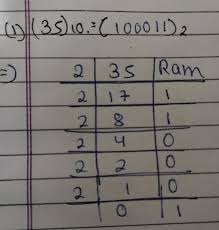 (1) (35)10.=(100011)2
=) 2 35 Ram
2 17 1
2 8 1
2 4 0
2 2 0
2 1 0
0 1